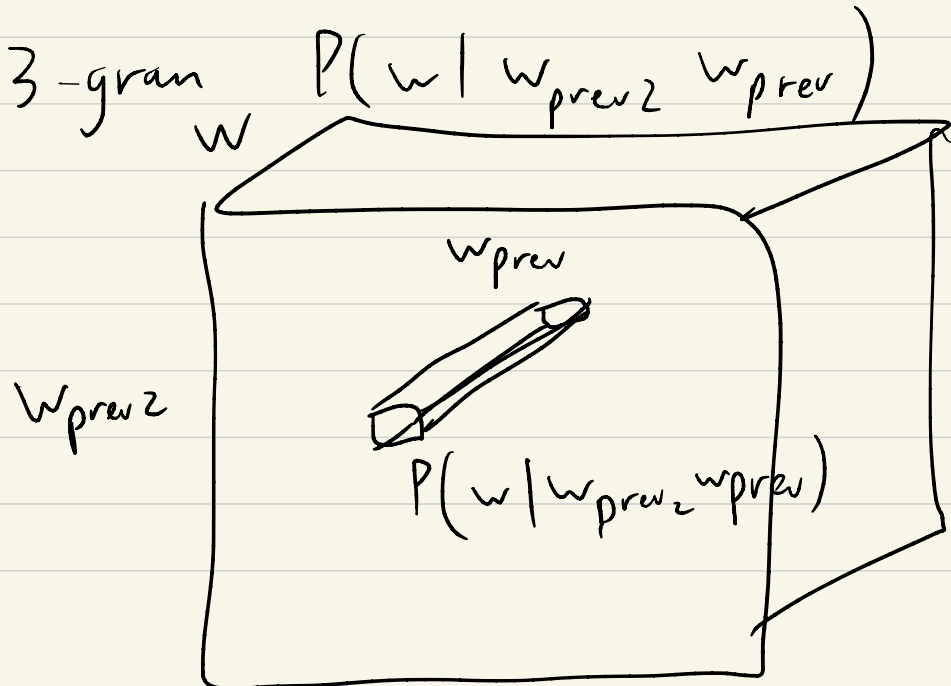 3-gran P(w | w_prev2 w_prev)
w
w_prev
w_prev2
P(w | w_prev2 w_prev)